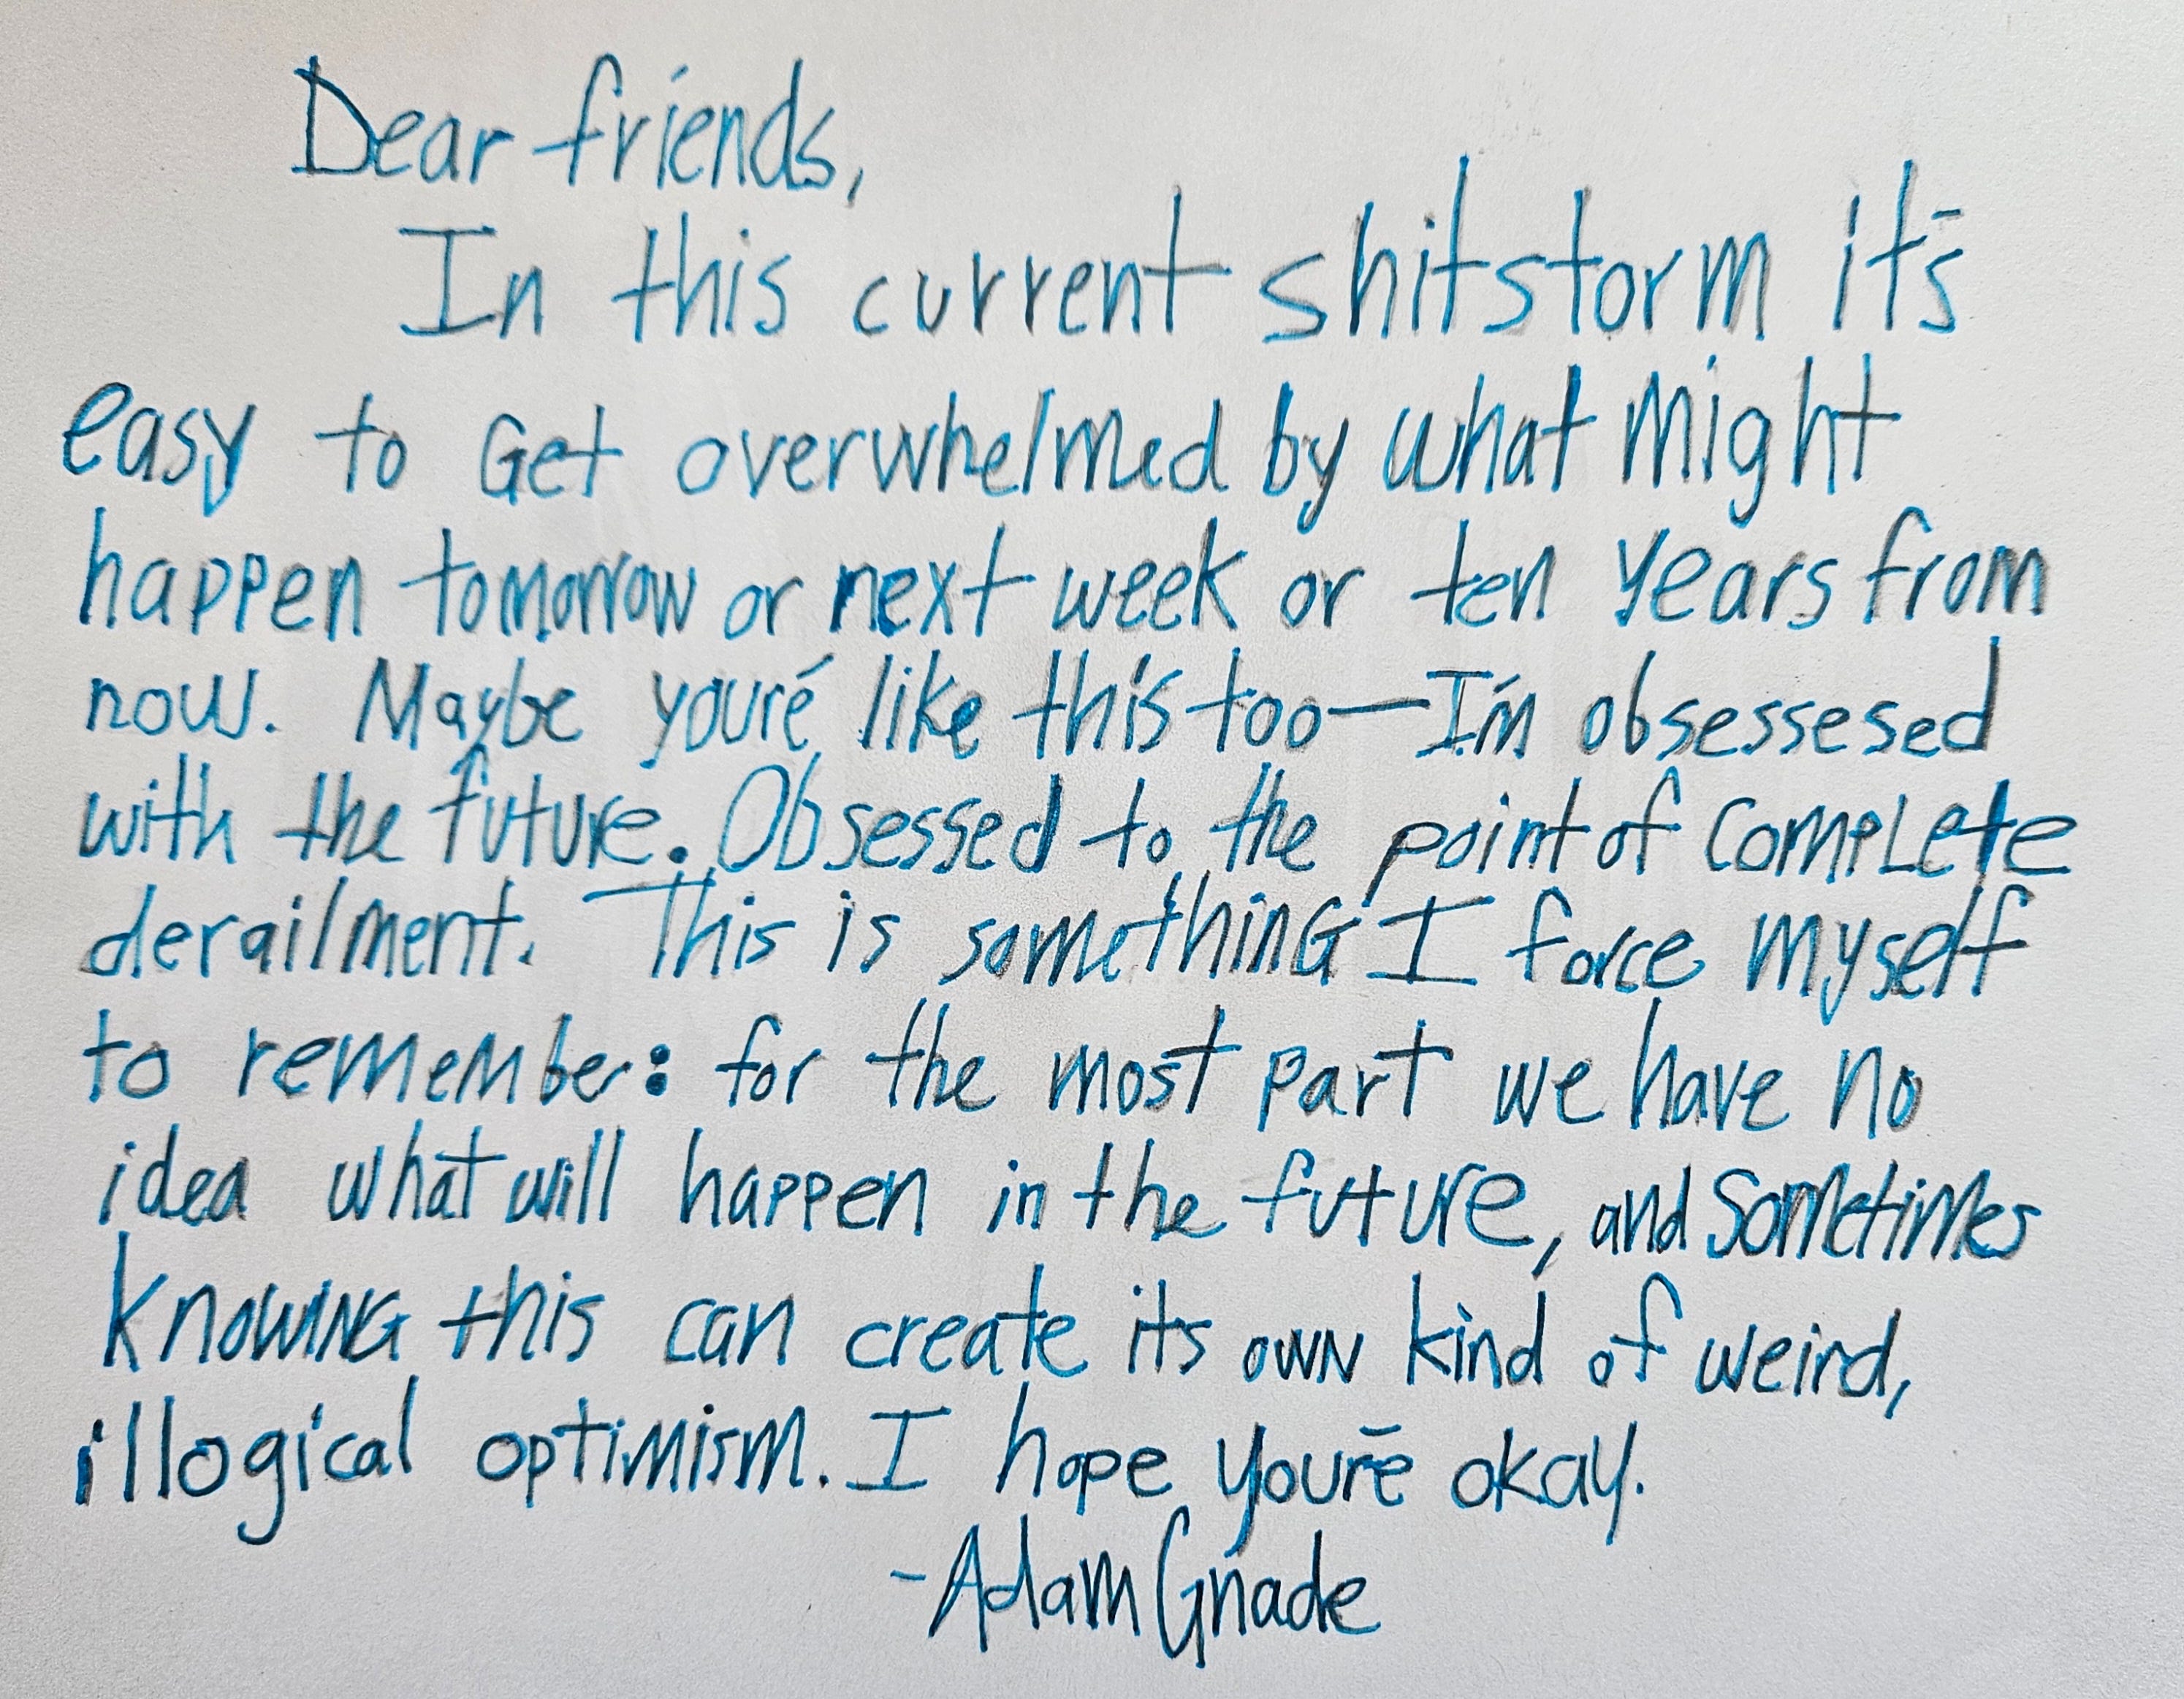 Dear friends,
In this current shitstorm it's
easy to Get overwhelmed by what might
happen tomorrow or next week or ten years from
now. Maybe you're like this too—I'm obsessesed
with the future. Obsessed to the point of complete
derailment. This is something I force myself
to remember: for the most part we have no
idea what will happen in the future, and sometimes
knowing this can create its own kind of weird,
illogical optimism. I hope you're okay.
-Adam Gnade